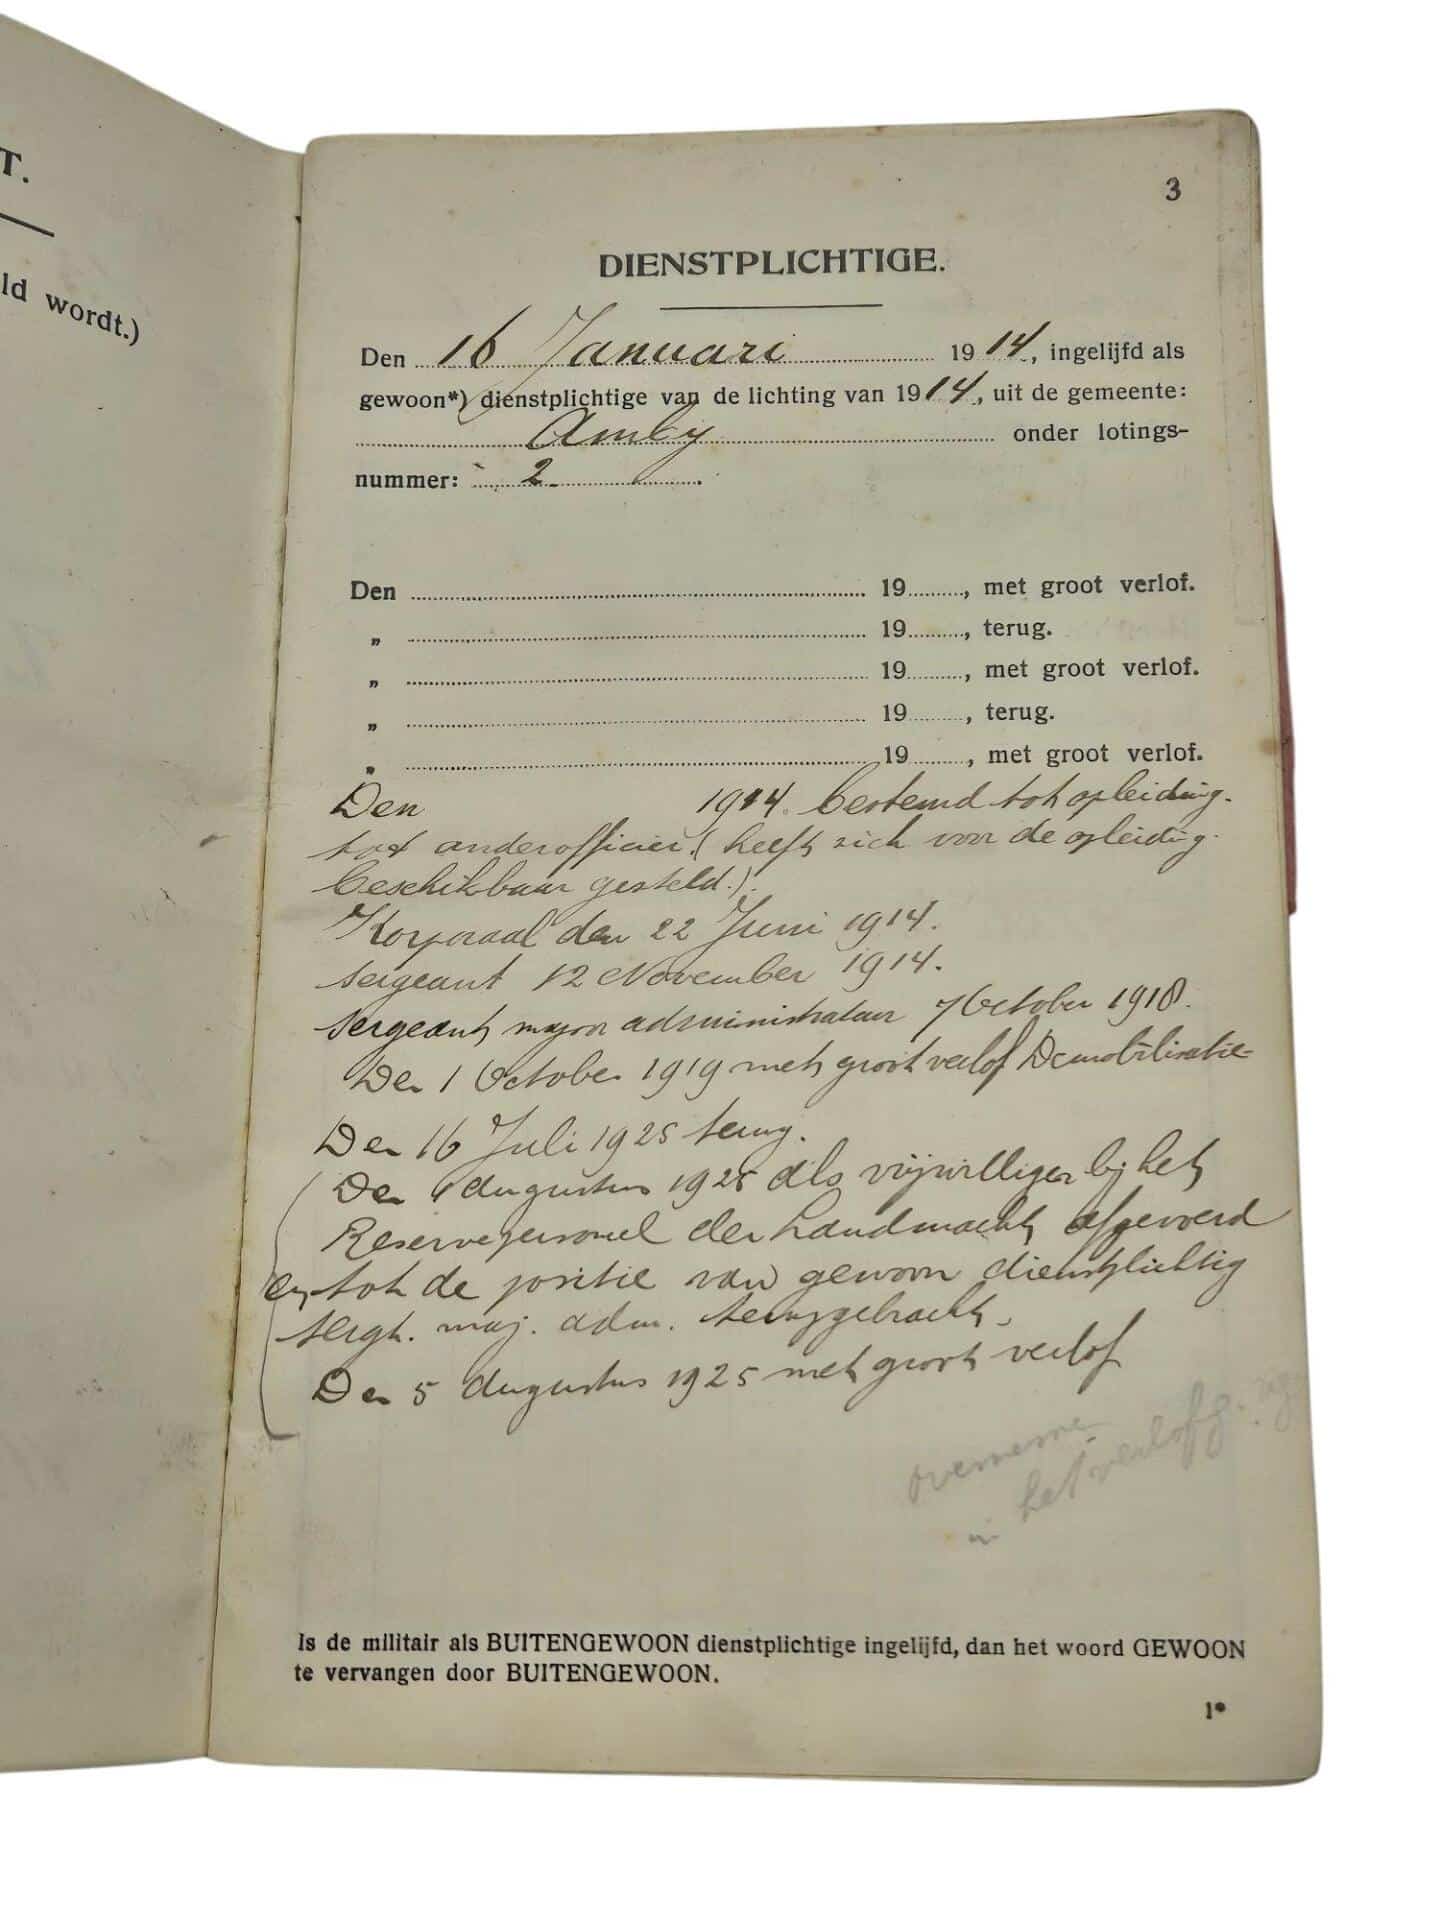 T.
ld wordt.)
3
DIENSTPLICHTIGE.
Den 16 Januari 1914, ingelijfd als
gewoon*) dienstplichtige van de lichting van 1914, uit de gemeente:
Amby onder lotings-
nummer: 2.
Den 19, met groot verlof.
„ 19, terug.
„ 19, met groot verlof.
„ 19, terug.
„ 19, met groot verlof.
Den 1914. bestemd tot opleiding.
tot onderofficier. (heeft zich voor de opleiding.
beschikbaar gesteld.).
Korporaal den 22 Juni 1914.
sergeant 12 November 1914.
sergeant majoor administrateur 7 October 1918.
Den 1 October 1919 met groot verlof Demobilisatie
Den 16 Juli 1925 terug.
Den augustus 1925 als vrijwilliger bij het
Reservepersoneel der Landmacht afgevoerd
en tot de positie van gewoon dienstplichtig
sergt. maj. adm. teruggebracht.
Den 5 augustus 1925 met groot verlof
overneme
in het verlof
Is de militair als BUITENGEWOON dienstplichtige ingelijfd, dan het woord GEWOON
te vervangen door BUITENGEWOON.
1*